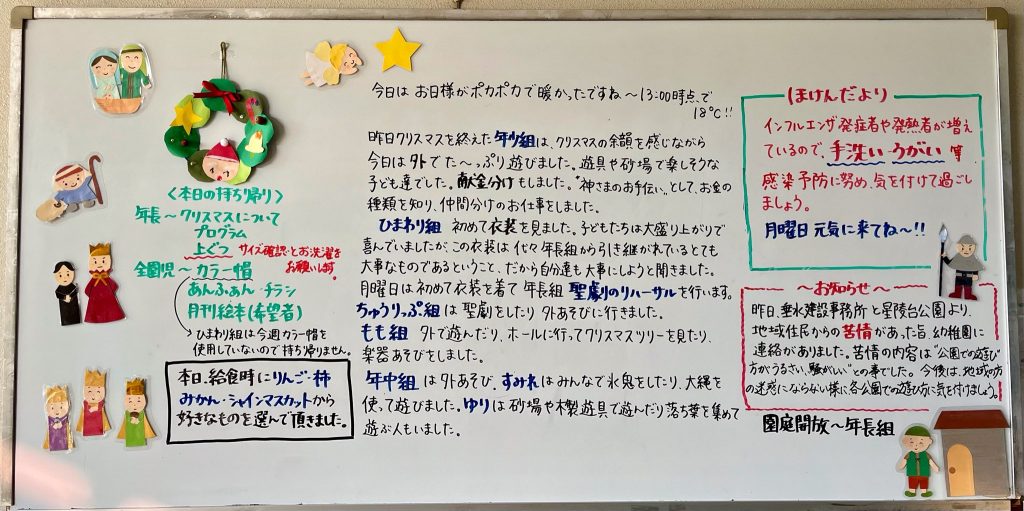 今日は お日様がポカポカで暖かったですね～13:00時点で
18℃!!
昨日クリスマスを終えた年少組は、クリスマスの余韻を感じながら
今日は外でた～っぷり遊びました。遊具や砂場で楽しそうな
子ども達でした。献金分けもしました。"神さまのお手伝い"として、お金の
種類を知り、仲間分けのお仕事をしました。
ひまわり組 初めて衣装を見ました。子どもたちは大盛り上がりで
喜んでいましたが、この衣装は代々年長組から引き継がれているとても
大事なものであるということ、だから自分達も大事にしようと聞きました。
月曜日は初めて衣装を着て 年長組 聖劇のリハーサルを行います。
ちゅうりっぷ組は 聖劇をしたり 外あそびに行きました。
もも組 外で遊んだり、ホールに行ってクリスマスツリーを見たり、
楽器あそびをしました。
年中組は外あそび、すみれはみんなで氷鬼をしたり、大縄を
使って遊びました。ゆりは砂場や木製遊具で遊んだり落ち葉を集めて
遊ぶ人もいました。
〈本日の持ち帰り〉
年長～クリスマスについて
プログラム
上ぐつ サイズ確認・お洗濯を
お願いします。
全園児～カラー帽
あんふぁん チラシ
月刊絵本(希望者)
ひまわり組は今週カラー帽を
使用していないので持ち帰りません。
本日、給食時にりんご・柿
みかん・シャインマスカットから
好きなものを選んで頂きました。
ほけんだより
インフルエンザ発症者や発熱者が増え
ているので、手洗い・うがい 等
感染予防に努め、気を付けて過ごし
ましょう。
月曜日 元気に来てね～!!
～お知らせ～
昨日、垂水建設事務所と星陵台公園より、
地域住民からの苦情があった旨、幼稚園に
連絡がありました。苦情の内容は"公園での遊び
方がうるさい、騒がしい"との事でした。今後は、地域の方
の迷惑にならない様に各公園での遊び方に気を付けましょう。
園庭開放～年長組